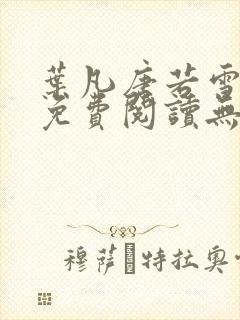 葉凡唐若雪
免費閱讀無
穆薩 特拉奧